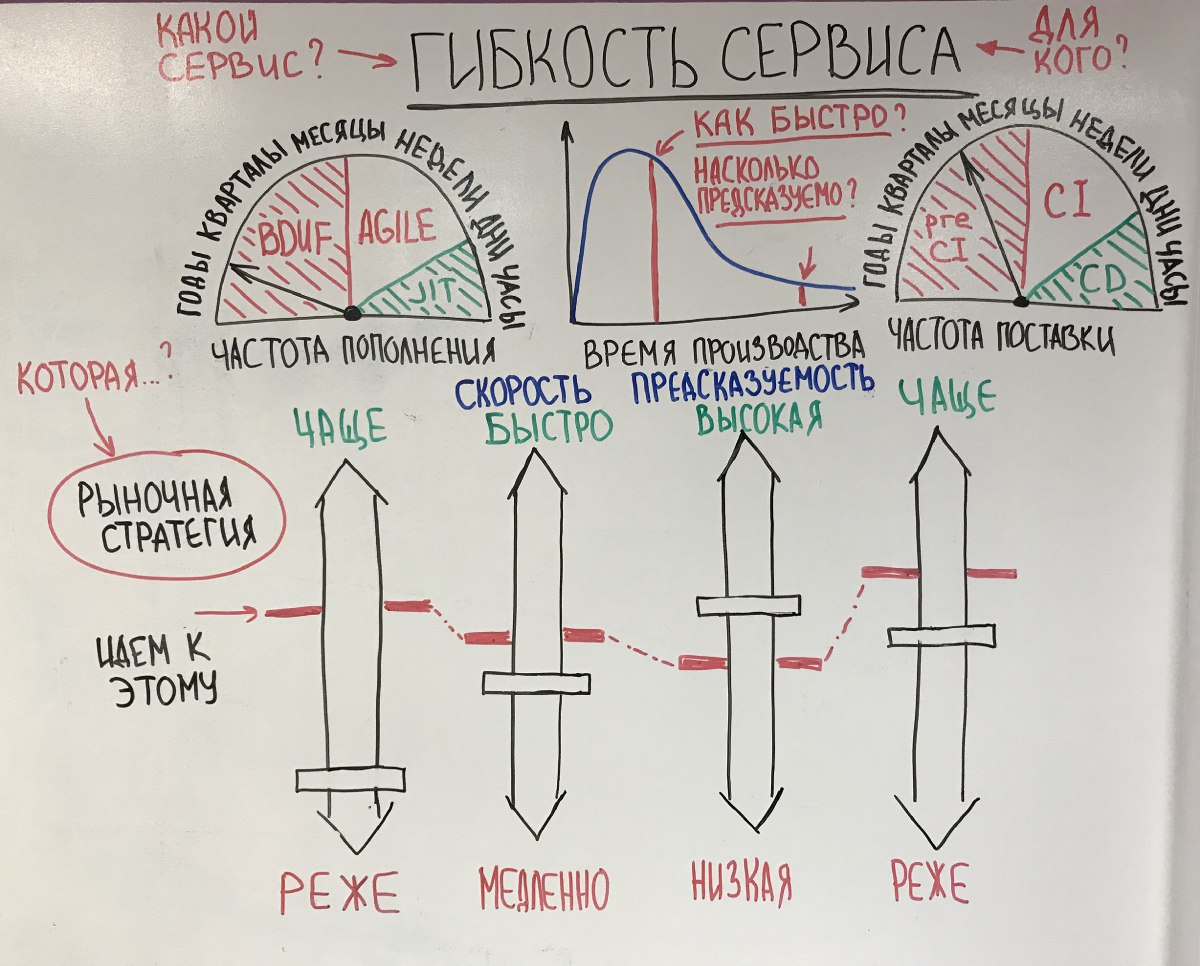 КАКОЙ
СЕРВИС?
ГИБКОСТЬ СЕРВИСА
ДЛЯ
КОГО?
ГОДЫ КВАРТАЛЫ МЕСЯЦЫ НЕДЕЛИ ДНИ ЧАСЫ
BDUF
AGILE
JIT
ЧАСТОТА ПОПОЛНЕНИЯ
КАК БЫСТРО?
НАСКОЛЬКО
ПРЕДСКАЗУЕМО?
ВРЕМЯ ПРОИЗВОДСТВА
ГОДЫ КВАРТАЛЫ МЕСЯЦЫ НЕДЕЛИ ДНИ ЧАСЫ
pre
CI
CI
CD
ЧАСТОТА ПОСТАВКИ
КОТОРАЯ...?
РЫНОЧНАЯ
СТРАТЕГИЯ
ЧАЩЕ
СКОРОСТЬ
БЫСТРО
ПРЕДСКАЗУЕМОСТЬ
ВЫСОКАЯ
ЧАЩЕ
ИДЕМ К
ЭТОМУ
РЕЖЕ
МЕДЛЕННО
НИЗКАЯ
РЕЖЕ